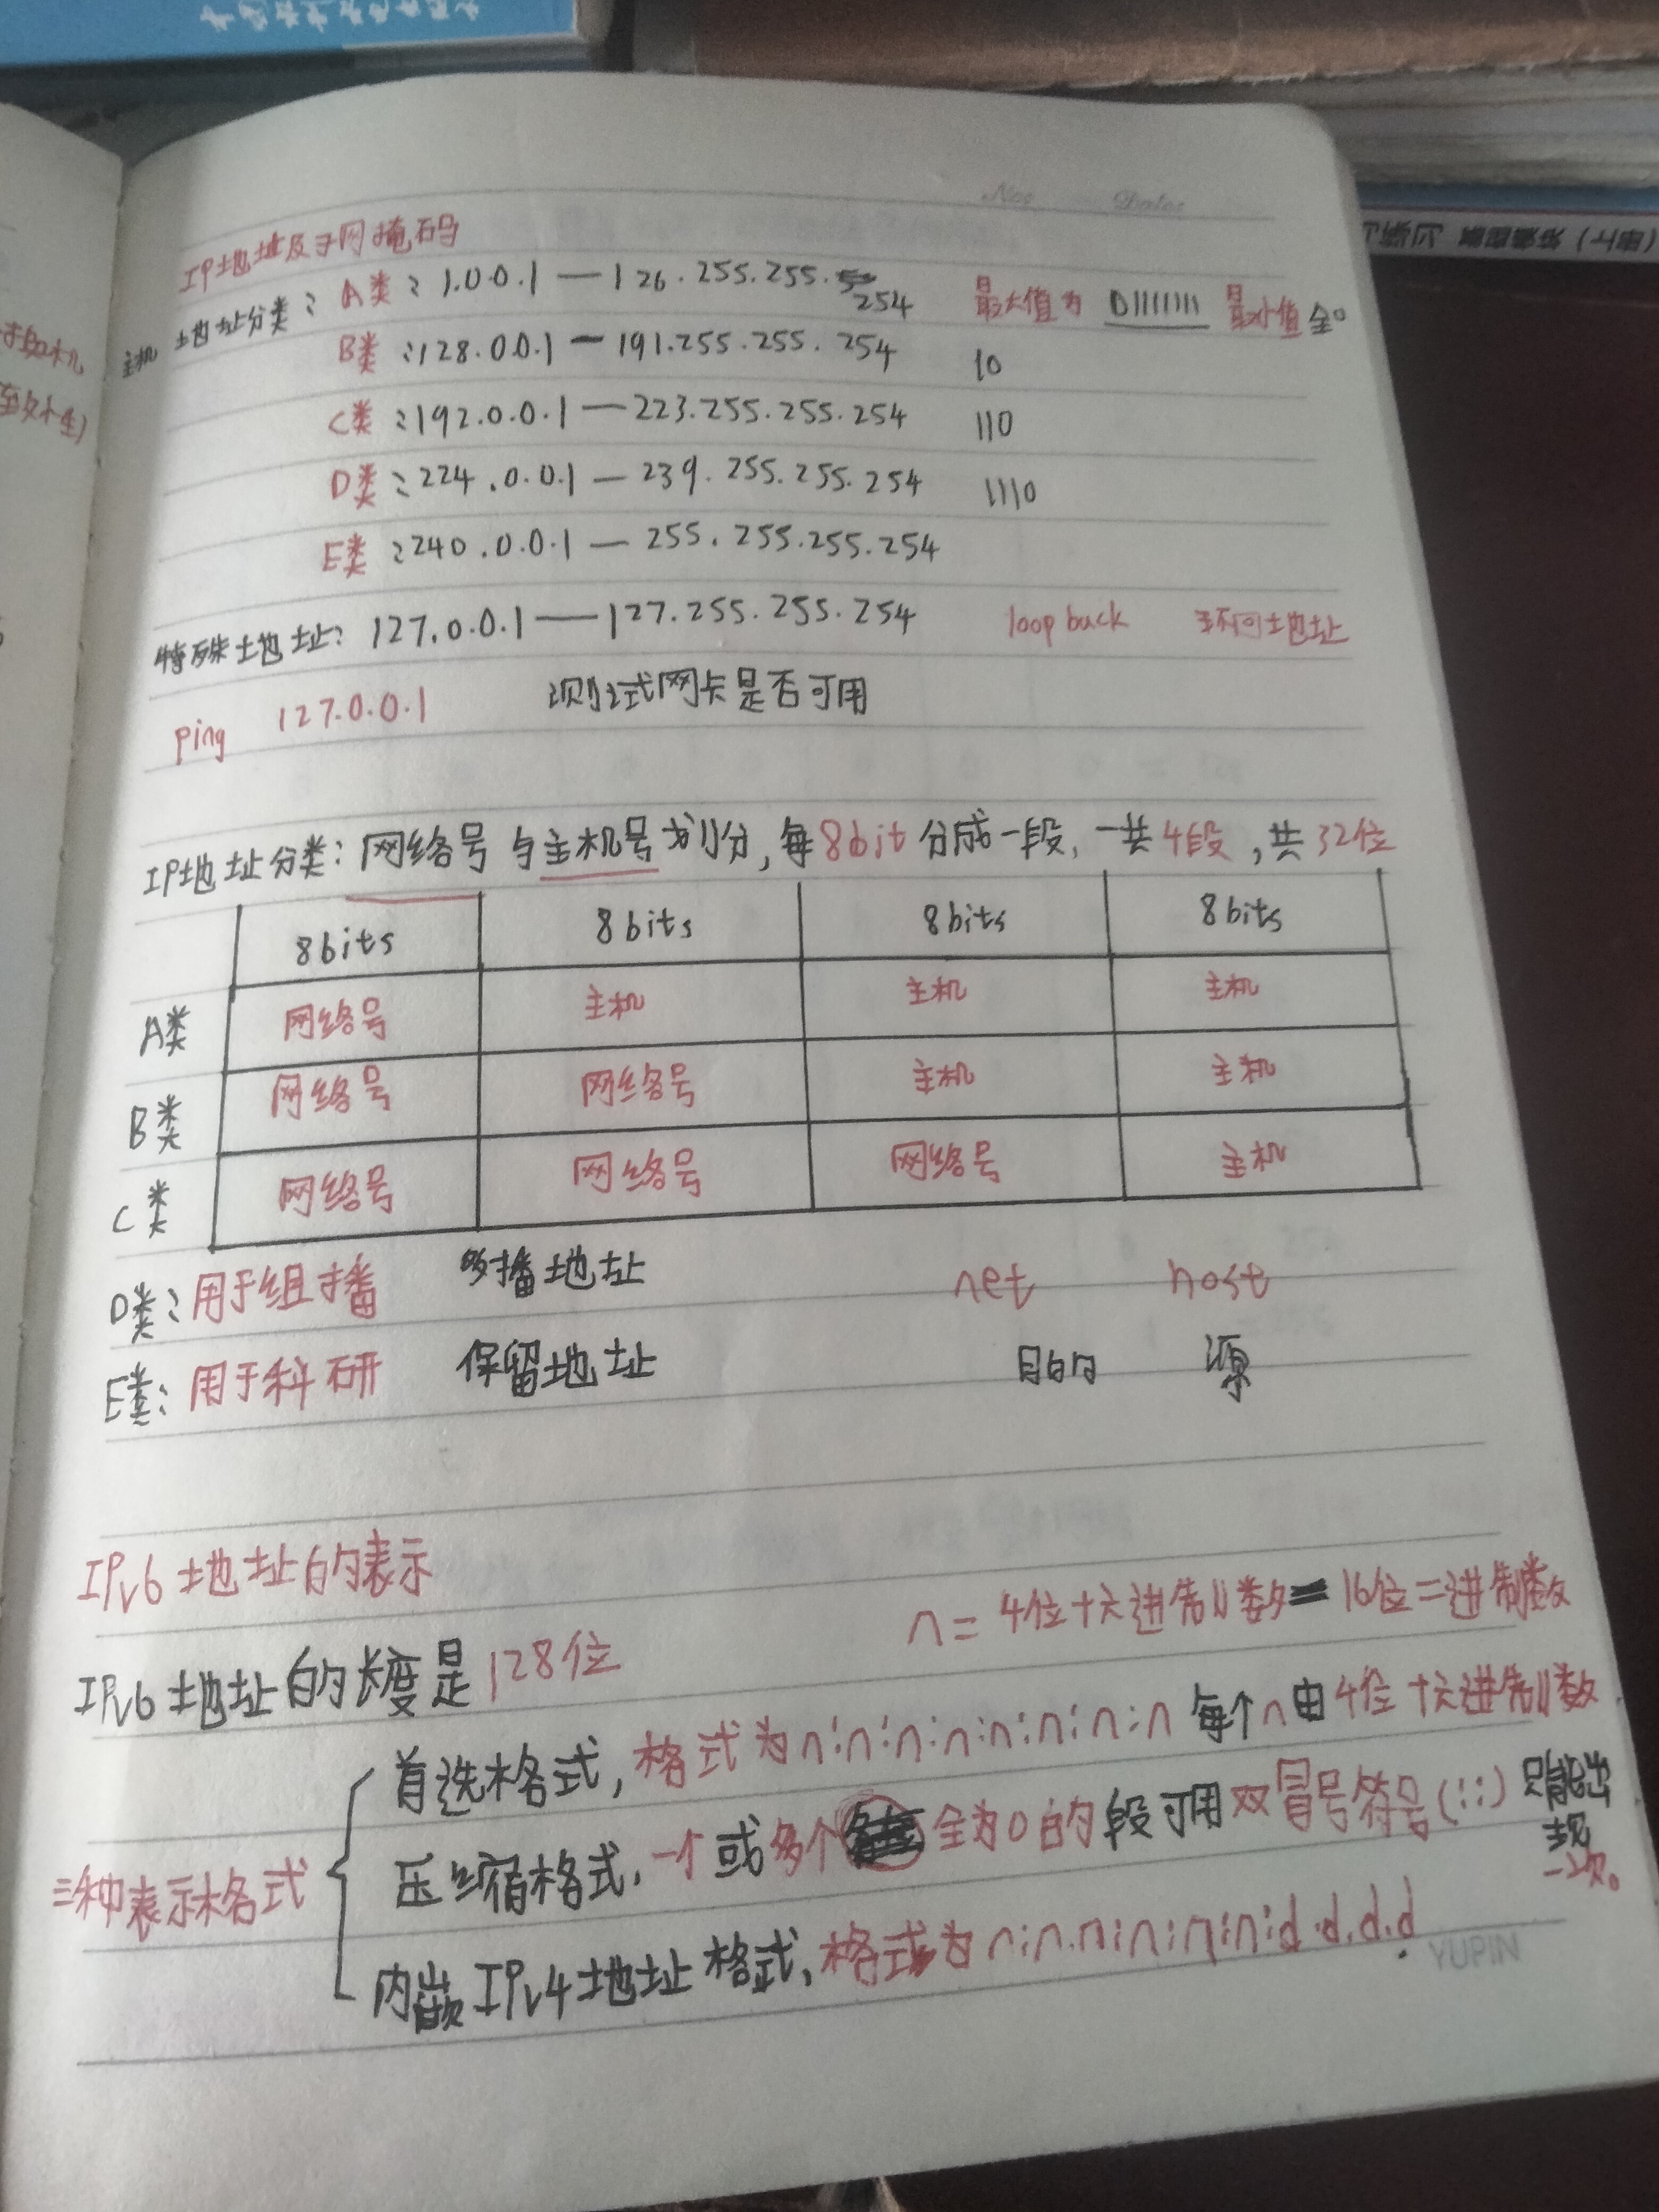 Nos Dates
IP地址及子网掩码
主机 地址分类: A类: 1.0.0.1 — 126.255.255.254 最大值为 01111111 最小值全0
B类: 128.0.0.1 — 191.255.255.254 10
C类: 192.0.0.1 — 223.255.255.254 110
D类: 224.0.0.1 — 239.255.255.254 1110
E类: 240.0.0.1 — 255.255.255.254
特殊地址: 127.0.0.1 — 127.255.255.254 loopback 环回地址
ping 127.0.0.1 测试网卡是否可用
IP地址分类: 网络号与主机号划分, 每8bit分成一段, 一共4段, 共32位
8bits 8bits 8bits 8bits
A类 网络号 主机 主机 主机
B类 网络号 网络号 主机 主机
C类 网络号 网络号 网络号 主机
D类: 用于组播 多播地址 net host
E类: 用于科研 保留地址 目的 源
IPv6地址的表示
n = 4位十六进制数 = 16位二进制数
IPv6地址的长度是128位
三种表示格式
首选格式, 格式为n:n:n:n:n:n:n:n 每个n由4位十六进制数
压缩格式, 一个或多个全为0的段可用双冒号符号(::) 只能出现一次。
内嵌IPv4地址格式, 格式为n:n:n:n:n:n:d.d.d.d
YUPIN
练习 基础模块(上册)